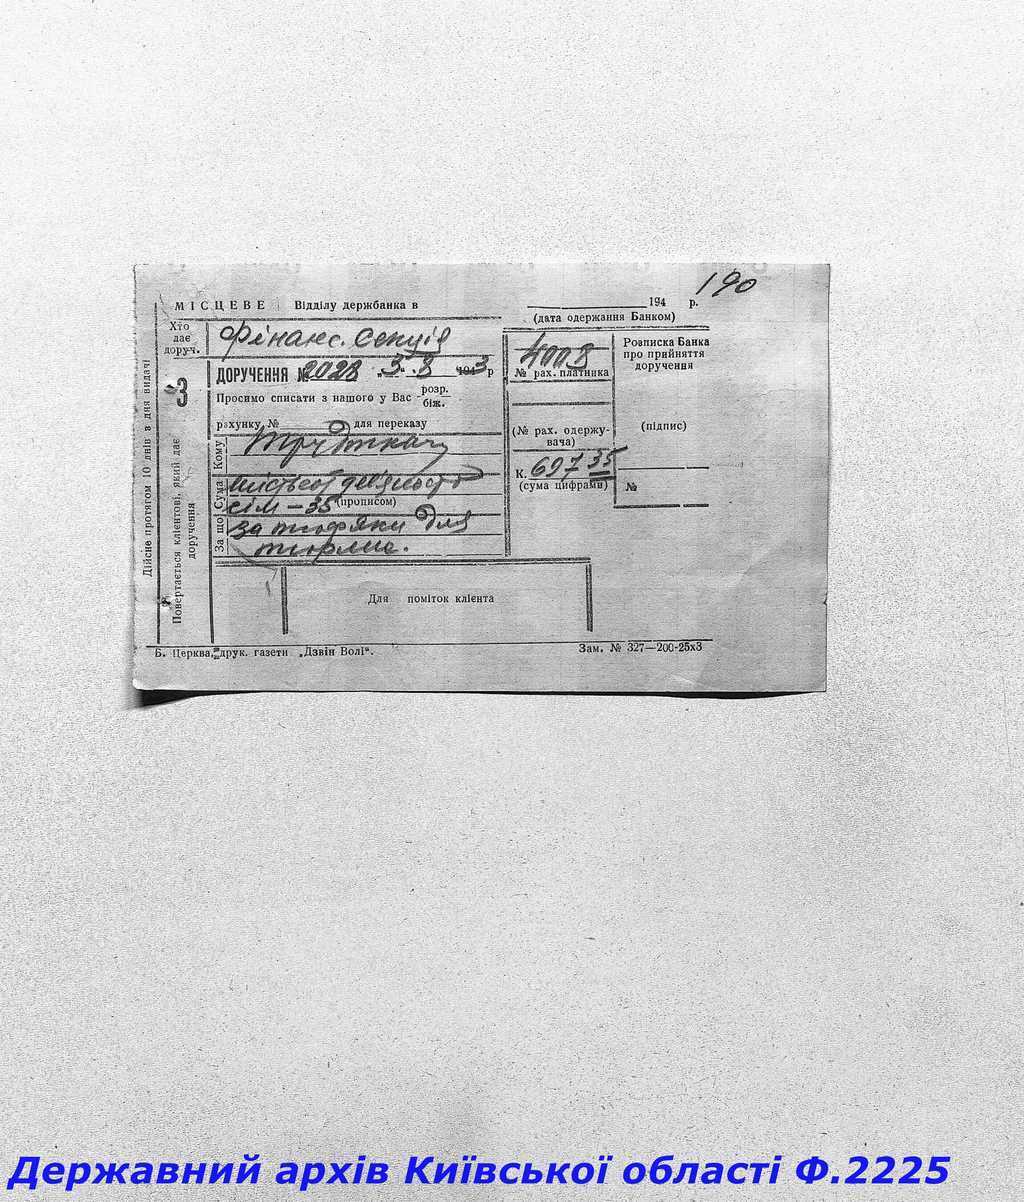 190
МІСЦЕВЕ Відділу держбанка в
194 р.
(дата одержання Банком)
Хто дає доруч.
Фінанс. Секція
ДОРУЧЕННЯ № 2028 „ 5. 8 1943 р
Просимо списати з нашого у Вас розр. біж.
рахунку № для переказу
Кому
Сума
шістьсот девяносто
сім – 35 (прописом)
За що
за тюфяки для
тюрми.
4008
№ рах. платника
(№ рах. одержувача)
К. 697 35
(сума цифрами)
Розписка Банка
про прийняття
доручення
(підпис)
№
3
Дійсне протягом 10 днів в дня видачі
Повертається клієнтові, який дає
доручення
Для поміток клієнта
Б. Церква, друк. газети „Дзвін Волі“.
Зам. № 327—200-25х3
Державний архів Київської області Ф.2225